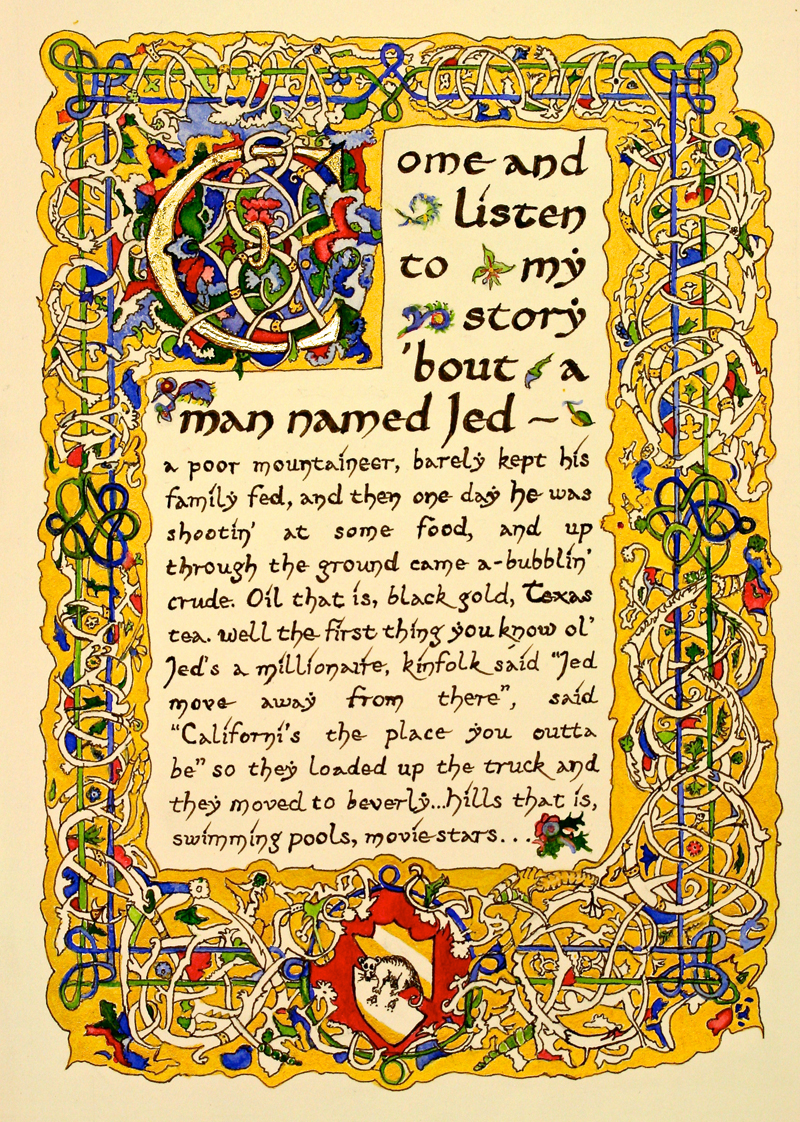 Come and
listen
to my
story
'bout a
man named Jed ~
a poor mountaineer, barely kept his
family fed, and then one day he was
shootin' at some food, and up
through the ground came a-bubblin'
crude. Oil that is, black gold, Texas
tea. well the first thing you know ol'
Jed's a millionaire, kinfolk said "Jed
move away from there", said
"Californi's the place you outta
be" so they loaded up the truck and
they moved to beverly...hills that is,
swimming pools, movie stars...